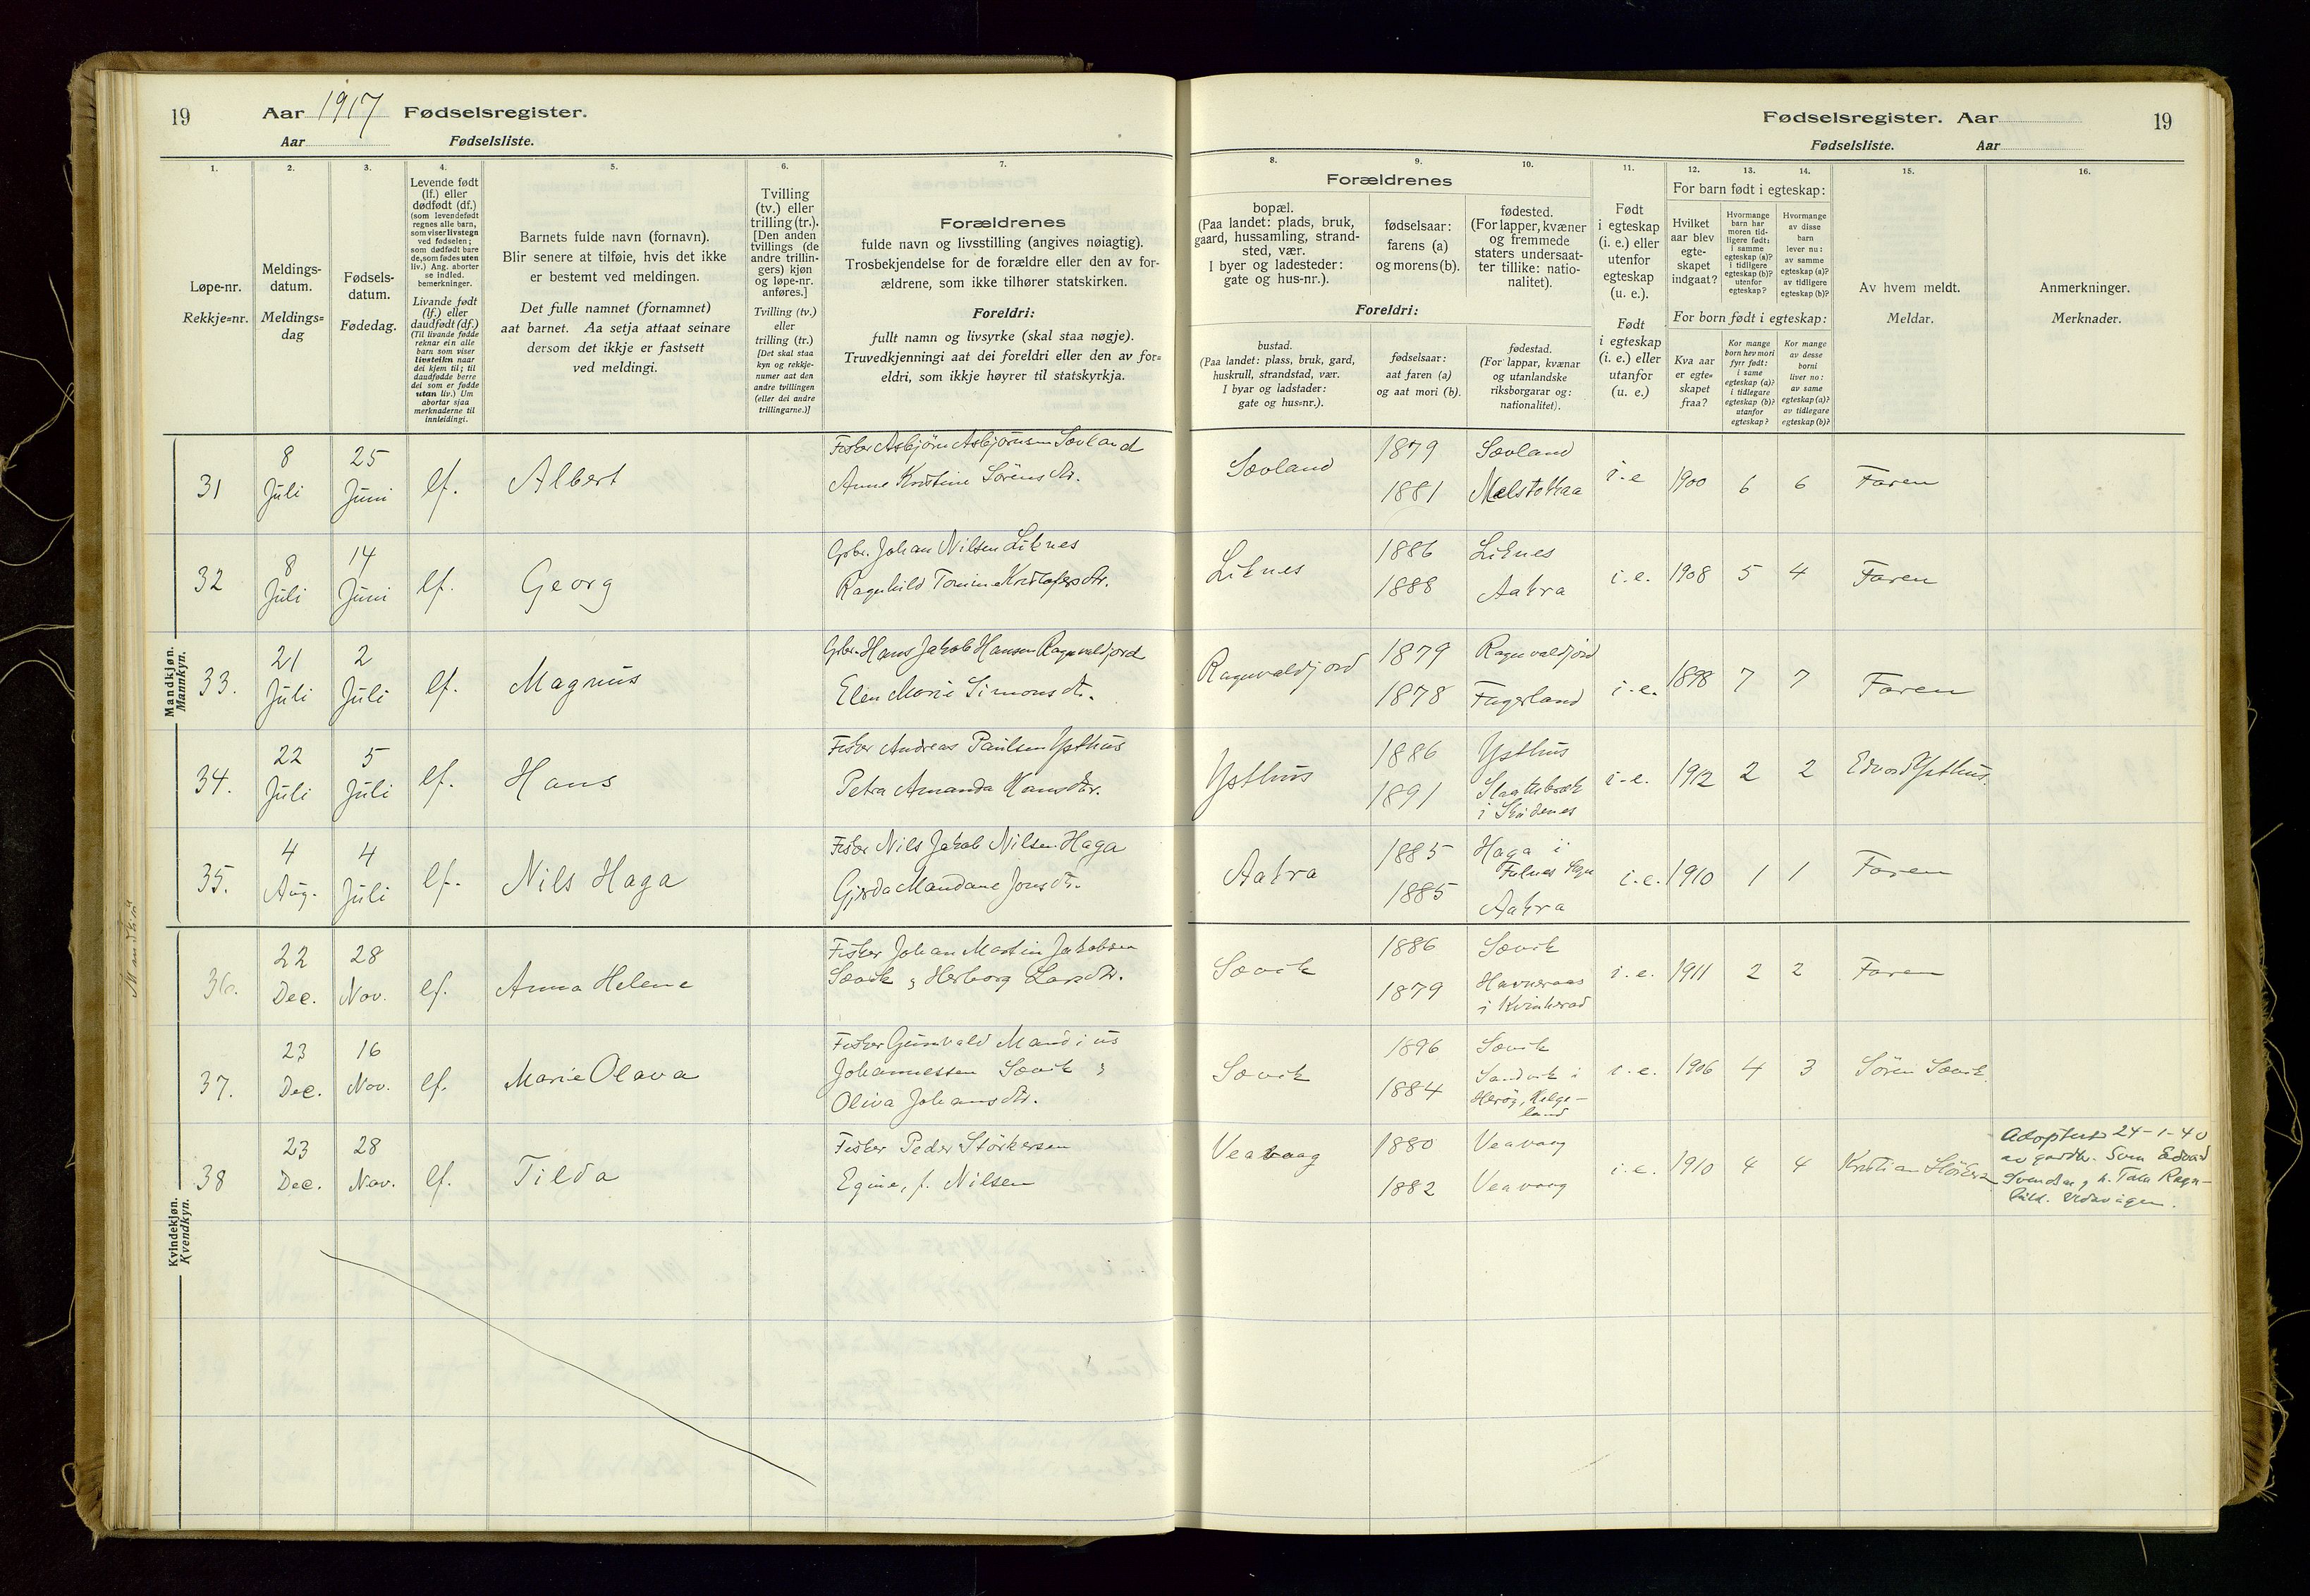 19
Aar 1917 Fødselsregister.
Aar Fødselsliste.
Fødselsregister. Aar
19
Fødselsliste. Aar
1. 2. 3. 4. 5. 6. 7.
Løpe-nr.
Rekkje=nr.
Meldings-
datum.
Meldings=
dag
Fødsels-
datum.
Fødedag.
Levende født
(lf.) eller
dødfødt (df.)
(som levendefødt
regnes alle barn,
som viser livstegn
ved fødselen;
som dødfødt bare
de, som fødes uten
liv.) Ang. aborter
se indled.
bemerkninger.
Livande født
(lf.) eller
daudfødt (df.)
(Til livande fødde
reknar ein alle
barn som viser
livsteikn naar
dei kjem til; til
daudfødde berre
dei som er fødde
utan liv.) Um
abortar sjaa
merknaderne til
innleidingi.
Barnets fulde navn (fornavn).
Blir senere at tilføie, hvis det ikke
er bestemt ved meldingen.
Det fulle namnet (fornamnet)
aat barnet. Aa setja attaat seinare
dersom det ikkje er fastsett
ved meldingi.
Tvilling
(tv.) eller
trilling (tr.).
[Den anden
tvillings (de
andre trillin-
gers) kjøn
og løpe-nr.
anføres.]
Tvilling (tv.)
eller
trilling (tr.)
[Det skal staa
kyn og rekkje-
numer aat den
andre tvillingen
(eller dei andre
trillingarne.)]
Forældrenes
fulde navn og livsstilling (angives nøiagtig).
Trosbekjendelse for de forældre eller den av for-
ældrene, som ikke tilhører statskirken.
Foreldri:
fullt namn og livsyrke (skal staa nøgje).
Truvedkjenningi aat dei foreldri eller den av for=
eldri, som ikkje høyrer til statskyrkja.
8. 9. 10. 11. 12. 13. 14. 15. 16.
Forældrenes
bopæl.
(Paa landet: plads, bruk,
gaard, hussamling, strand-
sted, vær.
I byer og ladesteder:
gate og hus-nr.).
fødselsaar:
farens (a)
og morens (b).
fødested.
(For lapper, kvæner
og fremmede
staters undersaat-
ter tillike: natio-
nalitet).
Foreldri:
bustad.
(Paa landet: plass, bruk, gard,
huskrull, strandstad, vær.
I byar og ladstader:
gate og hus=nr.).
fødselsaar:
aat faren (a)
og aat mori (b).
fødestad.
(For lappar, kvænar
og utanlandske
riksborgarar og:
nationalitet).
Født
i egteskap
(i. e.) eller
utenfor
egteskap
(u. e.).
Født
i egteskap
(i. e.) eller
utanfor
(u. e.)
For barn født i egteskap:
Hvilket
aar blev
egte-
skapet
indgaat?
Hvormange
barn har
moren tid-
ligere født:
i samme
egteskap (a)?
i tidligere
egteskap (b)?
utenfor
egteskap?
Hvormange
av disse
barn
lever nu:
av samme
egteskap (a)?
av tidligere
egteskap (b)?
For born født i egteskap:
Kva aar
er egte=
skapet
fraa?
Kor mange
born hev mori
fyrr født:
i same
egteskap (a)?
i tidlegare
egteskap (b)?
utanfor
egteskap?
Kor mange
av desse
borni
liver no:
av same
egteskap (a)?
av tidlegare
egteskap (b)?
Av hvem meldt.
Meldar.
Anmerkninger.
Merknader.
Mandkjøn.
Mannkyn.
31 8 Juli 25 Juni lf. Albert
Fisker Asbjørn Asbjørnsen Sævland
Anne Kristine Sørensdtr.
Sævland 1879 1881 Sævland Mælstokkaa i.e 1900 6 6 Faren
32 8 Juli 14 Juni lf. Georg
Gbr. Johan Nilsen Liknes
Ragnhild Tomine Kristofersdtr.
Liknes 1886 1888 Liknes Aakra i.e. 1908 5 4 Faren
33. 21 Juli 2 Juli lf. Magnus
Gbr. Hans Jakob Hansen Ragnvaldjord
Elen Marie Simonsdtr.
Ragnvaldjord 1879 1878 Ragnvaldjord Fagerland i.e. 1898 7 7 Faren
34. 22 Juli 5 Juli lf. Hans
Fisker Andreas Paulsen Ysthus
Petra Amanda Hansdtr.
Ysthus 1886 1891 Ysthus i Skudenes i.e. 1912 2 2 Edvard Ysthus.
35. 4 Aug. 4 Juli lf. Nils Haga
Fisker Nils Jakob Nilsen Haga
Gjerda Mandane Jonsdtr.
Aakra 1885 1885 Haga i Aakra i.e. 1910 1 1 Faren
Kvindekjøn.
Kvendkyn.
36. 22 Dec. 28 Nov. lf. Anna Helene
Fisker Johan Martin Jakobsen
Sævik, Herborg Larsdtr.
Sævik 1886 1879 Sævik i Kvinherad i.e. 1911 2 2 Faren
37. 23 Dec. 16 Nov. lf. Marie Olava
Fisker Gunvald Mandius
Johannessen Sævik
Oliva Johansdtr.
Sævik 1896 1884 Sævik Sandvik i
Herøy, Helge-
land
i.e. 1906 4 3 Søren Sævik.
38 23 Dec. 28 Nov. lf. Tilda
Fisker Peder Störkersen
Egine, f. Nilsen
Veavaag 1880 1882 Veavaag Veavaag i.e. 1910 4 4 Kristian Störkersen
Adoptert 24-1-40
av gardbr. Sven Edvard
Svendsen, h. Ragn-
hild. Vedavågen.